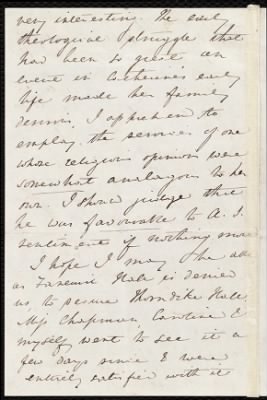 very interesting. The early
theological struggle that
had been so great an
event in Catherine's early
life made her family
desirous, I apprehend to
employ the services of one
whose religious opinions were
somewhat analogous to her
own. I should judge that
he was favourable to A. S.
sentiment if nothing more
I hope I may be able
as Faneuil Hall is denied
us, to secure Horticultl Hall
Mrs Chapman Caroline &
myself went to see it a
few days since & were
entirely satisfied with it